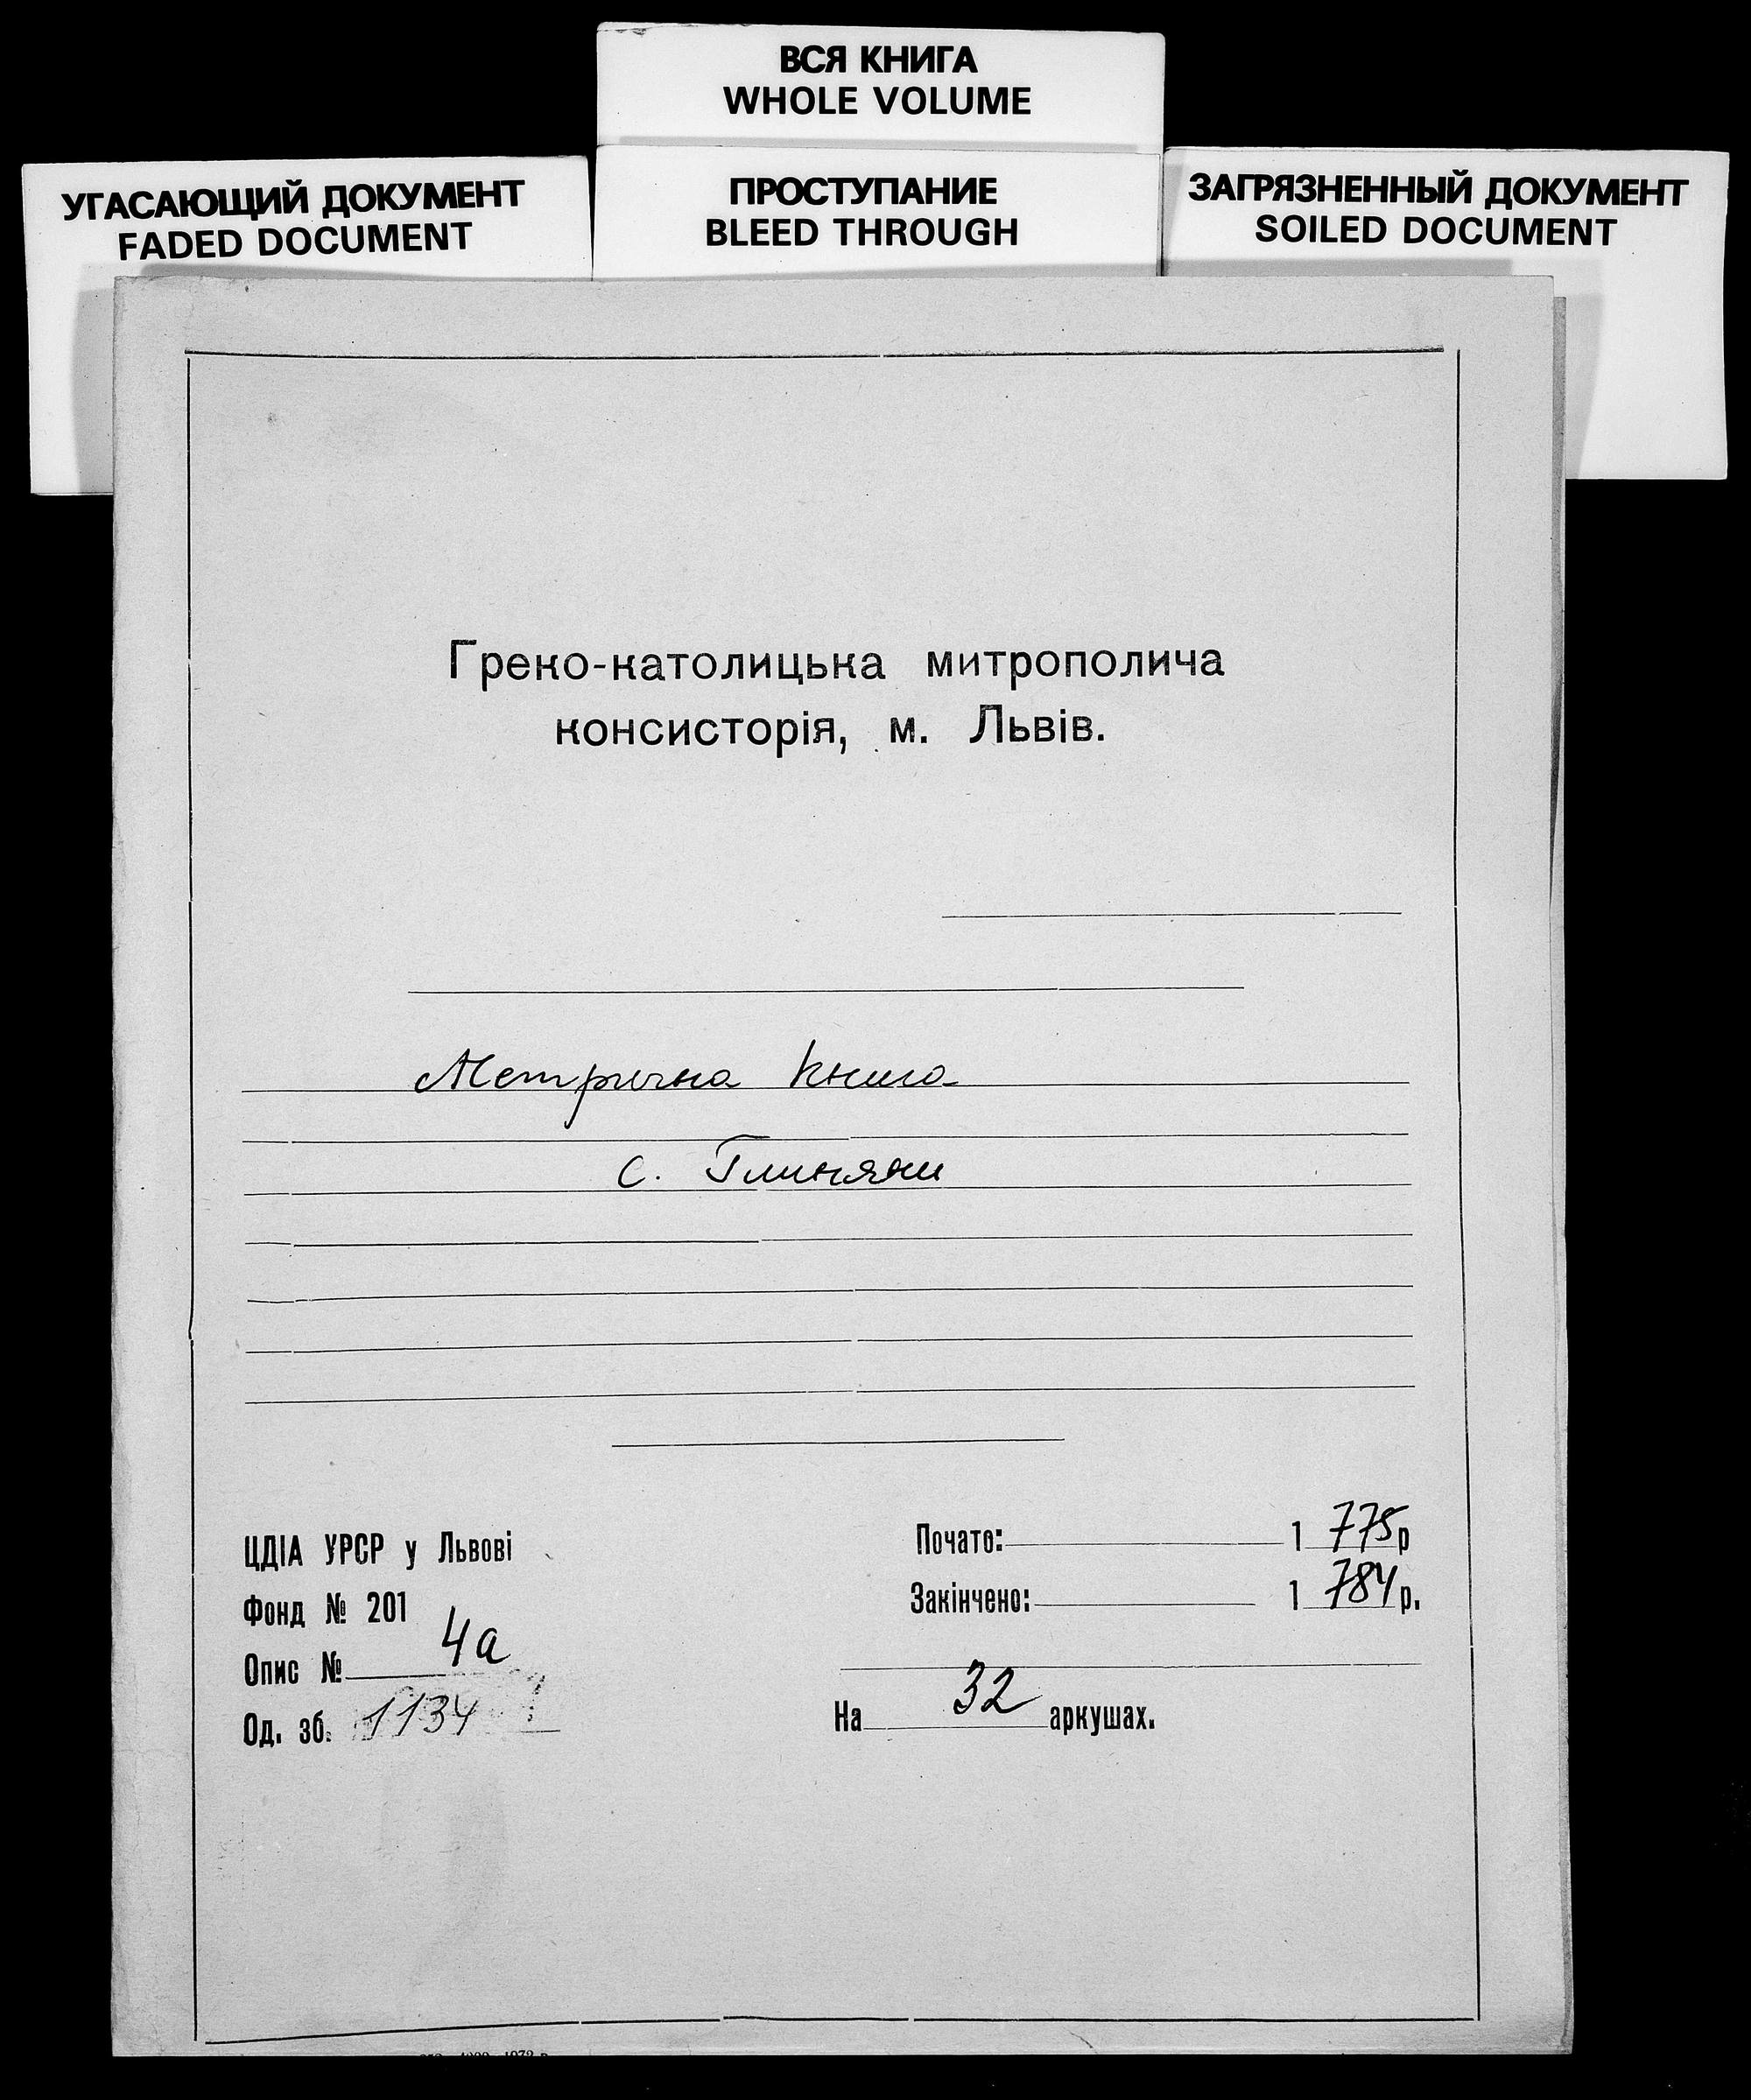 ВСЯ КНИГА
WHOLE VOLUME
УГАСАЮЩИЙ ДОКУМЕНТ
FADED DOCUMENT
ПРОСТУПАНИЕ
BLEED THROUGH
ЗАГРЯЗНЕННЫЙ ДОКУМЕНТ
SOILED DOCUMENT
Греко-католицька митрополича
консисторія, м. Львів.
Метрична книга
с. Глиняни
ЦДІА УРСР у Львові
Фонд № 201
Опис № 4а
Од. зб. 1134
Почато: 1775р
Закінчено: 1784р.
На 32 аркушах.